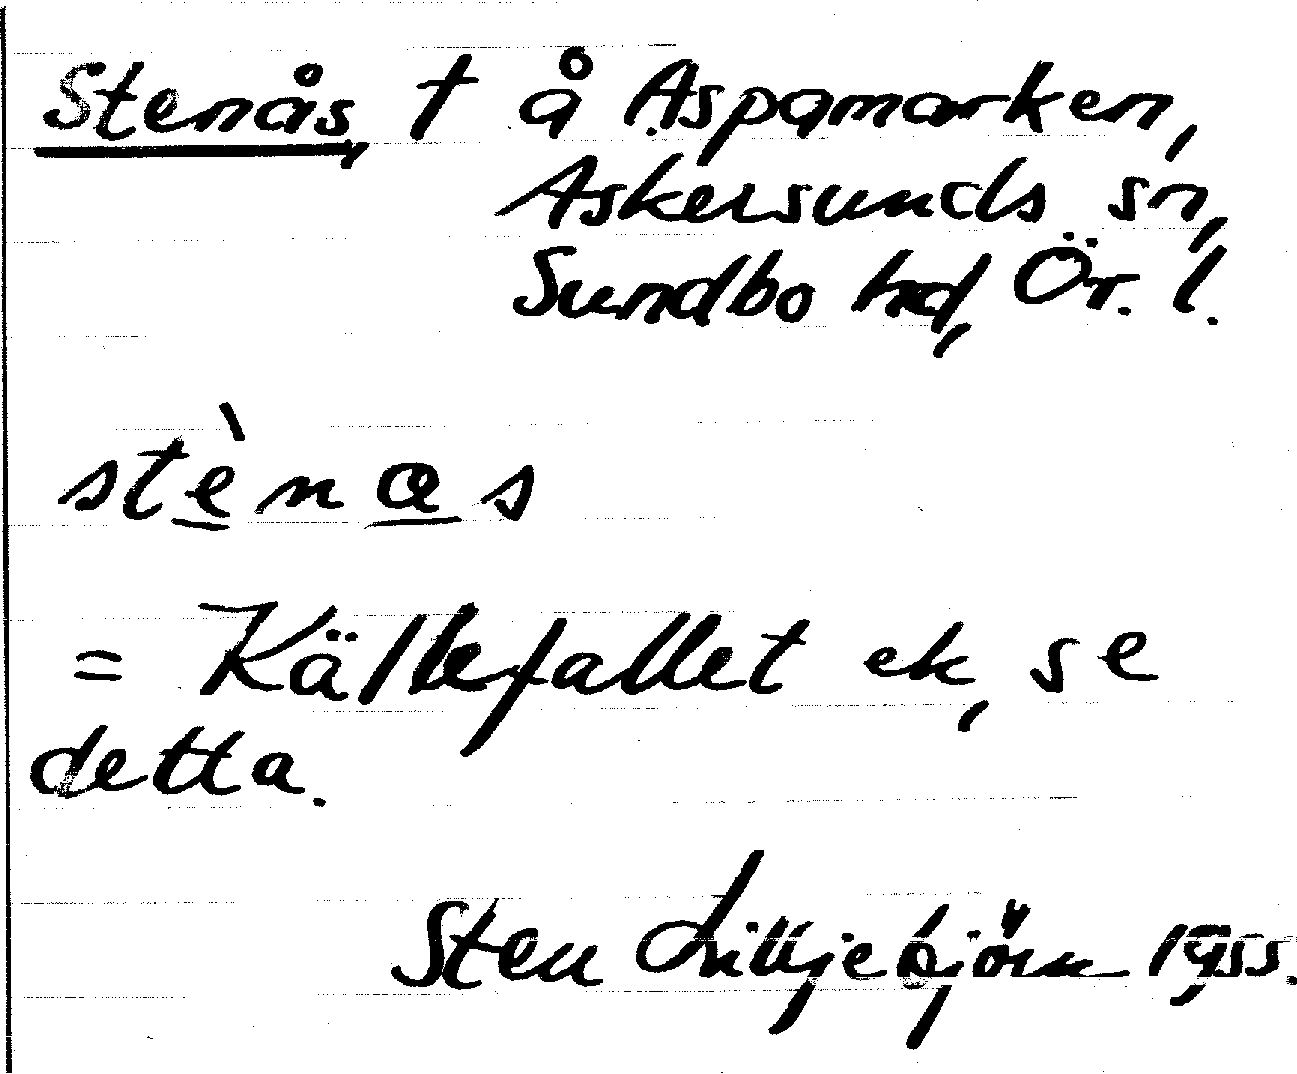 Stenås, t å Aspamarken,
Askersunds sn,
Sundbo hd, Ör. l.
stènas
= Källefallet ek, se
detta.
Sten Lilljebjörn 1955.